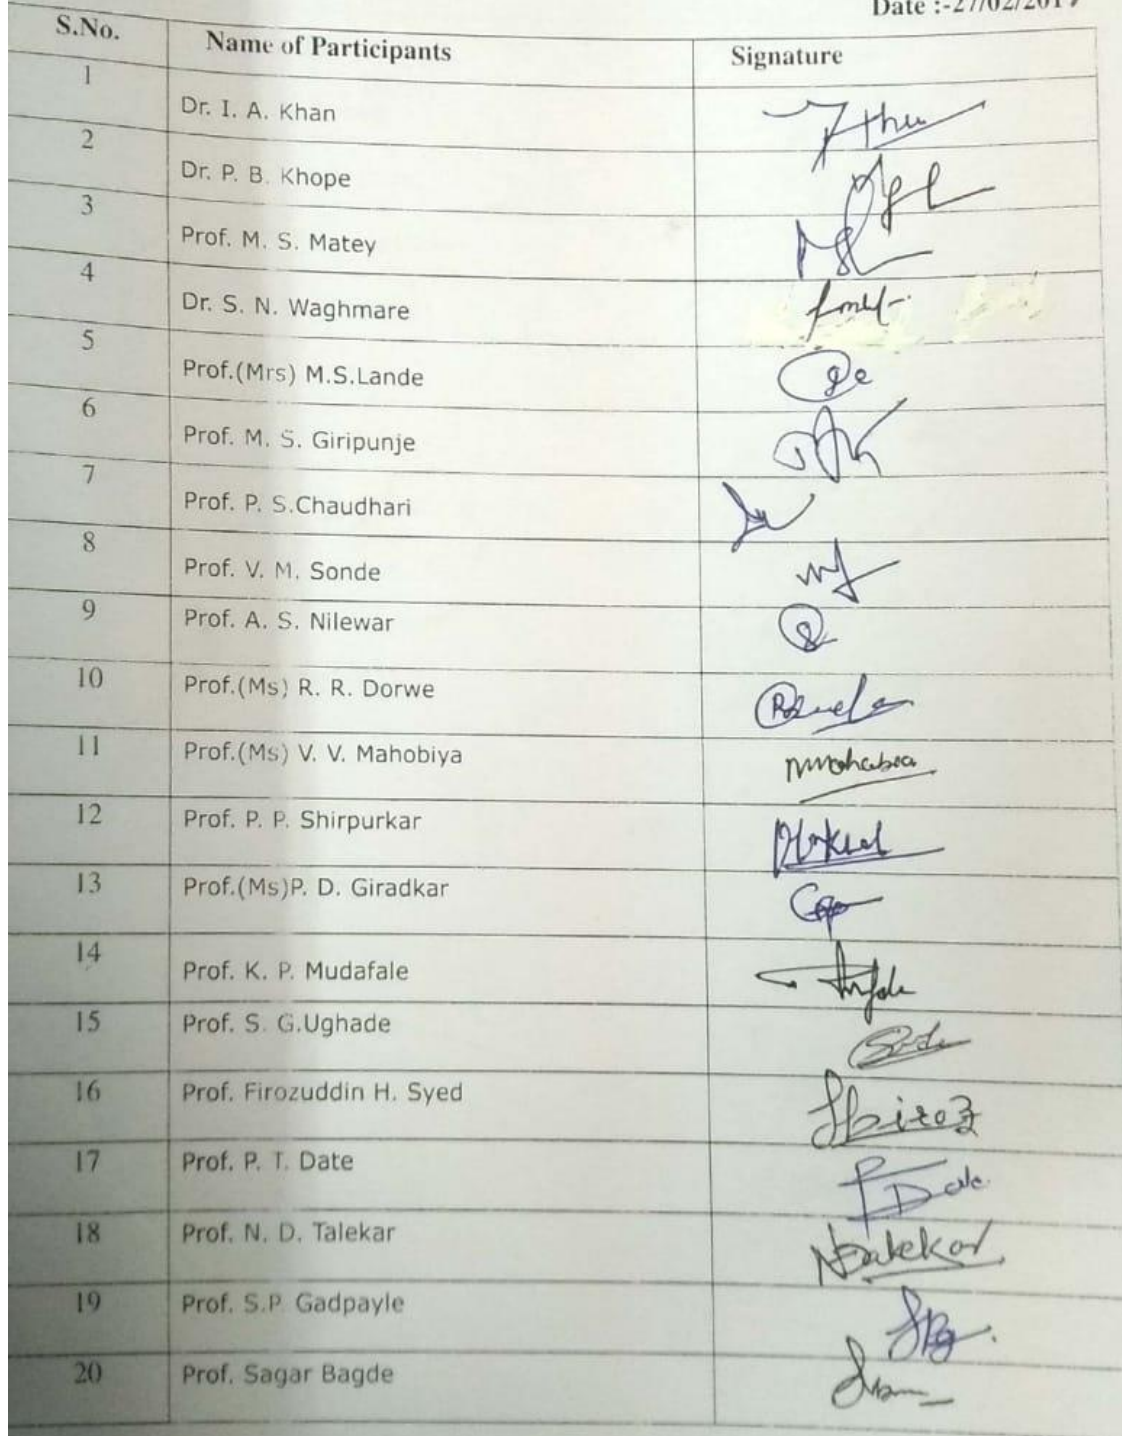 Date :-27/02/201
S.No. Name of Participants Signature
1 Dr. I. A. Khan
2 Dr. P. B. Khope
3 Prof. M. S. Matey
4 Dr. S. N. Waghmare
5 Prof.(Mrs) M.S.Lande
6 Prof. M. S. Giripunje
7 Prof. P. S.Chaudhari
8 Prof. V. M. Sonde
9 Prof. A. S. Nilewar
10 Prof.(Ms) R. R. Dorwe
11 Prof.(Ms) V. V. Mahobiya
12 Prof. P. P. Shirpurkar
13 Prof.(Ms)P. D. Giradkar
14 Prof. K. P. Mudafale
15 Prof. S. G.Ughade
16 Prof. Firozuddin H. Syed
17 Prof. P. T. Date
18 Prof. N. D. Talekar
19 Prof. S.P. Gadpayle
20 Prof. Sagar Bagde